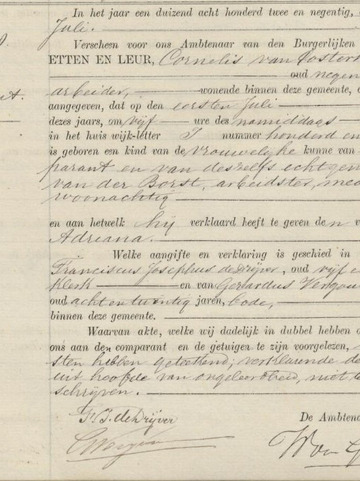 In het jaar een duizend acht honderd twee en negentig,
Juli.
Verscheen voor ons Ambtenaar van den Burgerlijken
ETTEN EN LEUR, Cornelis van Oosterh
oud negen
arbeider, wonende binnen deze gemeente,
aangegeven, dat op den eersten Juli
dezes jaars, om vijf ure des namiddags
in het huis wijk-letter J nummer honderd en
is geboren een kind van de vrouwelijke kunne van
parant en van deszelfs echtgen
van der Borst, arbeidster, mede
woonachtig
en aan hetwelk hij verklaard heeft te geven den v
Adriana.
Welke aangifte en verklaring is geschied in
Franciscus Josephus de Drijver, oud vijf e
klerk en van Gerardus Vergou
oud achtentwintig jaren, bode,
binnen deze gemeente.
Waarvan akte, welke wij dadelijk in dubbel hebben o
ons aan den comparant en de getuigen is zijn voorgelezen,
sten hebben geteekend; verklarende de
uit hoofde van ongeleerdheid, niet
schrijven.
Fr. J. de Drijver
De Ambtena